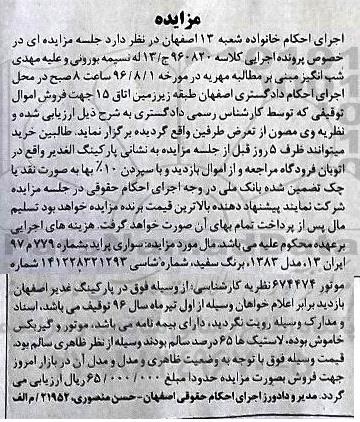 مزایده
اجرای احکام خانواده شعبه ۱۳ اصفهان در نظر دارد جلسه مزایده ای در
خصوص پرونده اجرایی کلاسه ۹۶۰۸۲۰ج/۱۳ له نسیمه بورونی و علیه مهدی
شب انگیز مبنی بر مطالبه مهریه در مورخه ۹۶/۸/۱ ساعت ۸ صبح در محل
اجرای احکام دادگستری اصفهان طبقه زیرزمین اتاق ۱۵ جهت فروش اموال
توقیفی که توسط کارشناس رسمی دادگستری به شرح ذیل ارزیابی شده و
نظریه وی مصون از تعرض طرفین واقع گردیده برگزار نماید. طالبین خرید
میتوانند ظرف ۵ روز قبل از جلسه مزایده به نشانی پارکینگ الغدیر واقع در
اتوبان فرودگاه مراجعه و از اموال بازدید و با سپردن ۱۰٪ بها به صورت نقد یا
چک تضمین شده بانک ملی در وجه اجرای احکام حقوقی در جلسه مزایده
شرکت نمایند پیشنهاد دهنده بالاترین قیمت برنده مزایده خواهد بود تسلیم
مال پس از پرداخت تمام بهای آن صورت خواهد گرفت. هزینه های اجرایی
برعهده محکوم علیه می باشد. مال مورد مزایده: سواری پراید بشماره ۷۷۹م۹۷
ایران ۱۳، مدل ۱۳۸۳، برنگ سفید، شماره شاسی ۱۴۱۲۲۸۳۲۱۲۹۳ شماره
موتور ۶۷۴۴۷۴ نظریه کارشناسی: از وسیله فوق در پارکینگ غدیر اصفهان
بازدید برابر اعلام خواهان وسیله از اول تیرماه سال ۹۶ توقیف می باشد، اسناد
و مدارک وسیله رویت نگردید، دارای بیمه نامه می باشد، موتور و گیربکس
خاموش بوده، لاستیک ها ۶۵ درصد سالم بودند وسیله از نظر ظاهری سالم بود.
قیمت وسیله فوق با توجه به وضعیت ظاهری و مدل و مدل آن در بازار امروز
جهت فروش بصورت مزایده حدودا مبلغ ۶۵/۰۰۰/۰۰۰ ریال ارزیابی می
گردد. مدیر و دادورز اجرای احکام حقوقی اصفهان - حسن منصوری، ۲۱۹۵۲/م الف